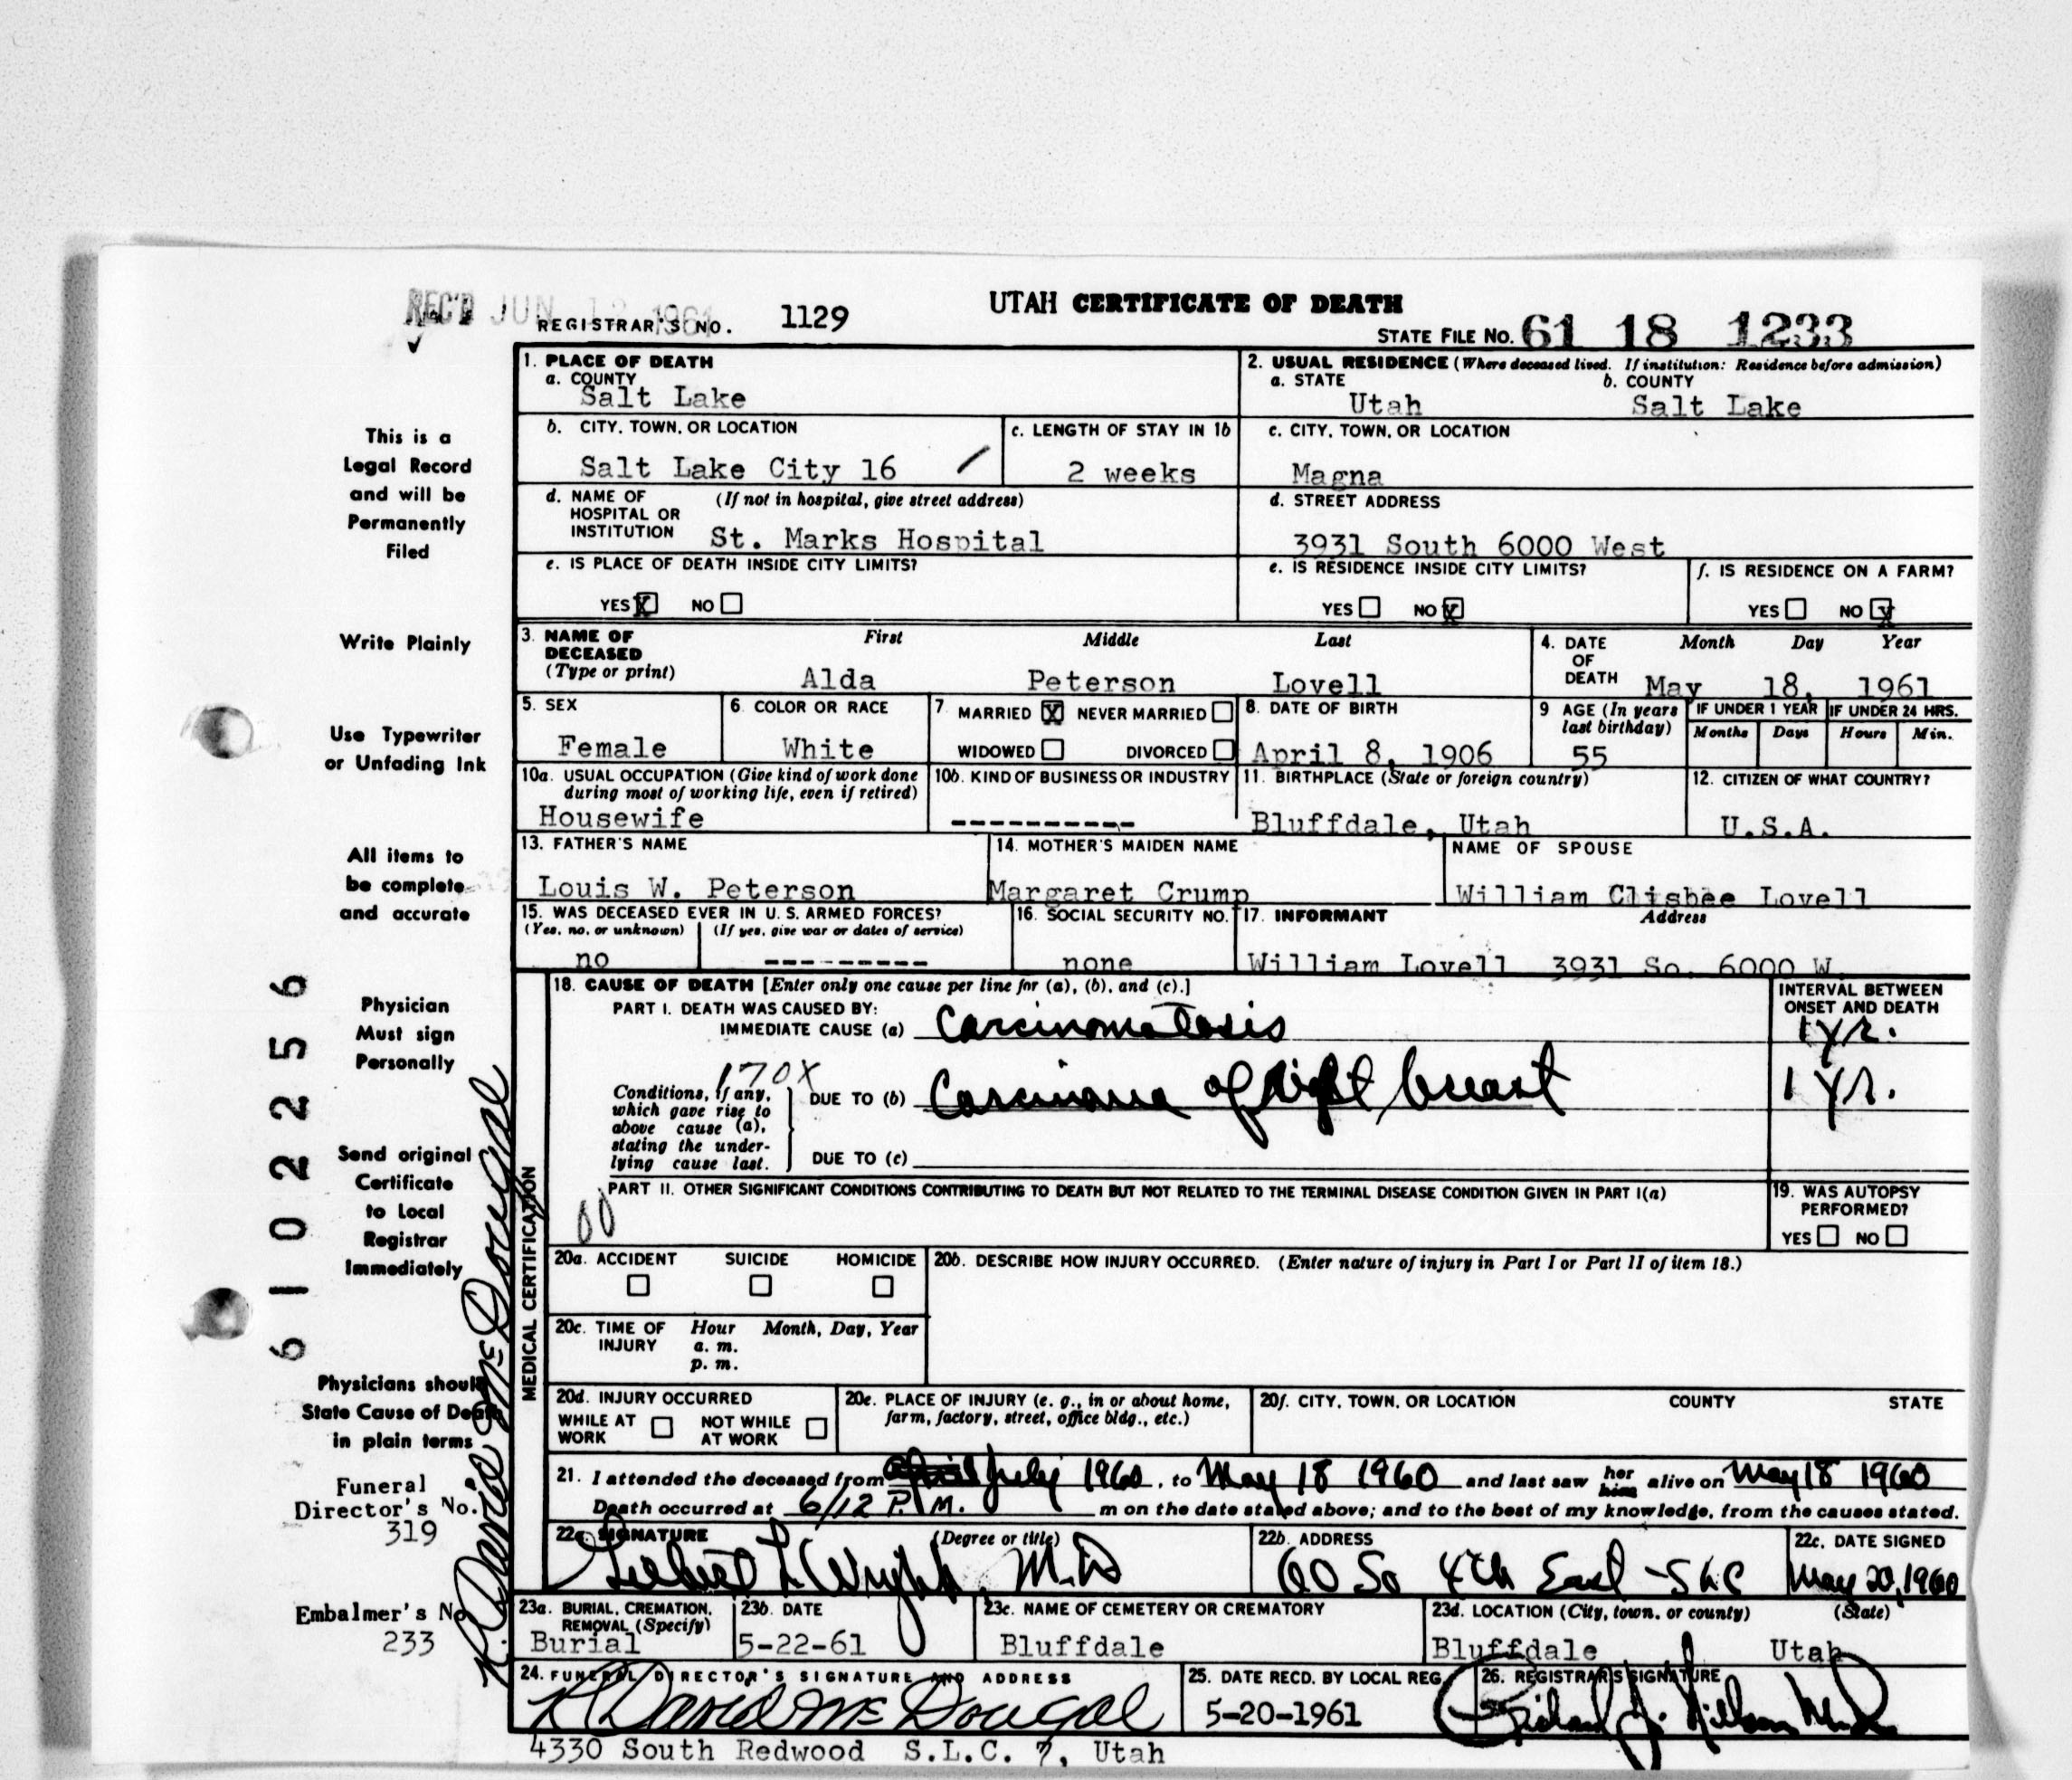 REC'D JUN 12 1961
REGISTRAR'S NO. 1129
UTAH CERTIFICATE OF DEATH
STATE FILE NO. 61 18 1233
1. PLACE OF DEATH
a. COUNTY
Salt Lake
2. USUAL RESIDENCE (Where deceased lived. If institution: Residence before admission)
a. STATE b. COUNTY
Utah Salt Lake
b. CITY, TOWN, OR LOCATION
Salt Lake City 16
c. LENGTH OF STAY IN 1b
2 weeks
c. CITY, TOWN, OR LOCATION
Magna
d. NAME OF HOSPITAL OR INSTITUTION (If not in hospital, give street address)
St. Marks Hospital
d. STREET ADDRESS
3931 South 6000 West
e. IS PLACE OF DEATH INSIDE CITY LIMITS?
YES X NO
e. IS RESIDENCE INSIDE CITY LIMITS?
YES NO X
f. IS RESIDENCE ON A FARM?
YES NO X
3. NAME OF DECEASED (Type or print)
First Middle Last
Alda Peterson Lovell
4. DATE OF DEATH Month Day Year
May 18, 1961
5. SEX
Female
6. COLOR OR RACE
White
7. MARRIED X NEVER MARRIED
WIDOWED DIVORCED
8. DATE OF BIRTH
April 8, 1906
9 AGE (In years last birthday)
55
IF UNDER 1 YEAR
Months Days
IF UNDER 24 HRS.
Hours Min.
10a. USUAL OCCUPATION (Give kind of work done during most of working life, even if retired)
Housewife
10b. KIND OF BUSINESS OR INDUSTRY
----------
11. BIRTHPLACE (State or foreign country)
Bluffdale, Utah
12. CITIZEN OF WHAT COUNTRY?
U.S.A.
13. FATHER'S NAME
Louis W. Peterson
14. MOTHER'S MAIDEN NAME
Margaret Crump
NAME OF SPOUSE
William Clisbee Lovell
15. WAS DECEASED EVER IN U. S. ARMED FORCES?
(Yes, no, or unknown) (If yes, give war or dates of service)
no ---------
16. SOCIAL SECURITY NO.
none
17. INFORMANT Address
William Lovell 3931 So. 6000 W.
MEDICAL CERTIFICATION
18. CAUSE OF DEATH [Enter only one cause per line for (a), (b), and (c).]
INTERVAL BETWEEN ONSET AND DEATH
PART I. DEATH WAS CAUSED BY:
IMMEDIATE CAUSE (a) Carcinomatosis 1 yr.
170X
Conditions, if any, which gave rise to above cause (a), stating the underlying cause last.
DUE TO (b) Carcinoma of right breast 1 yr.
DUE TO (c)
PART II. OTHER SIGNIFICANT CONDITIONS CONTRIBUTING TO DEATH BUT NOT RELATED TO THE TERMINAL DISEASE CONDITION GIVEN IN PART I(a)
00
19. WAS AUTOPSY PERFORMED?
YES NO
20a. ACCIDENT SUICIDE HOMICIDE
20b. DESCRIBE HOW INJURY OCCURRED. (Enter nature of injury in Part I or Part II of item 18.)
20c. TIME OF INJURY Hour Month, Day, Year
a. m.
p. m.
20d. INJURY OCCURRED
WHILE AT WORK NOT WHILE AT WORK
20e. PLACE OF INJURY (e. g., in or about home, farm, factory, street, office bldg., etc.)
20f. CITY, TOWN, OR LOCATION COUNTY STATE
21. I attended the deceased from July 1960, to May 18 1960 and last saw her him alive on May 18 1960
Death occurred at 6/12 P. M. m on the date stated above; and to the best of my knowledge, from the causes stated.
22a. SIGNATURE (Degree or title)
L. Wright, M.D
22b. ADDRESS
60 So 4th East - SLC
22c. DATE SIGNED
May 20, 1960
23a. BURIAL, CREMATION, REMOVAL (Specify)
Burial
23b. DATE
5-22-61
23c. NAME OF CEMETERY OR CREMATORY
Bluffdale
23d. LOCATION (City, town, or county) (State)
Bluffdale Utah
24. FUNERAL DIRECTOR'S SIGNATURE AND ADDRESS
R. David McDougal
4330 South Redwood S.L.C. 7, Utah
25. DATE RECD. BY LOCAL REG.
5-20-1961
26. REGISTRAR'S SIGNATURE
This is a
Legal Record
and will be
Permanently
Filed
Write Plainly
Use Typewriter
or Unfading Ink
All items to
be complete
and accurate
Physician
Must sign
Personally
Send original
Certificate
to Local
Registrar
Immediately
Physicians should
State Cause of Death
in plain terms
Funeral
Director's No.
319
Embalmer's No
233
6102256
R. David McDougal